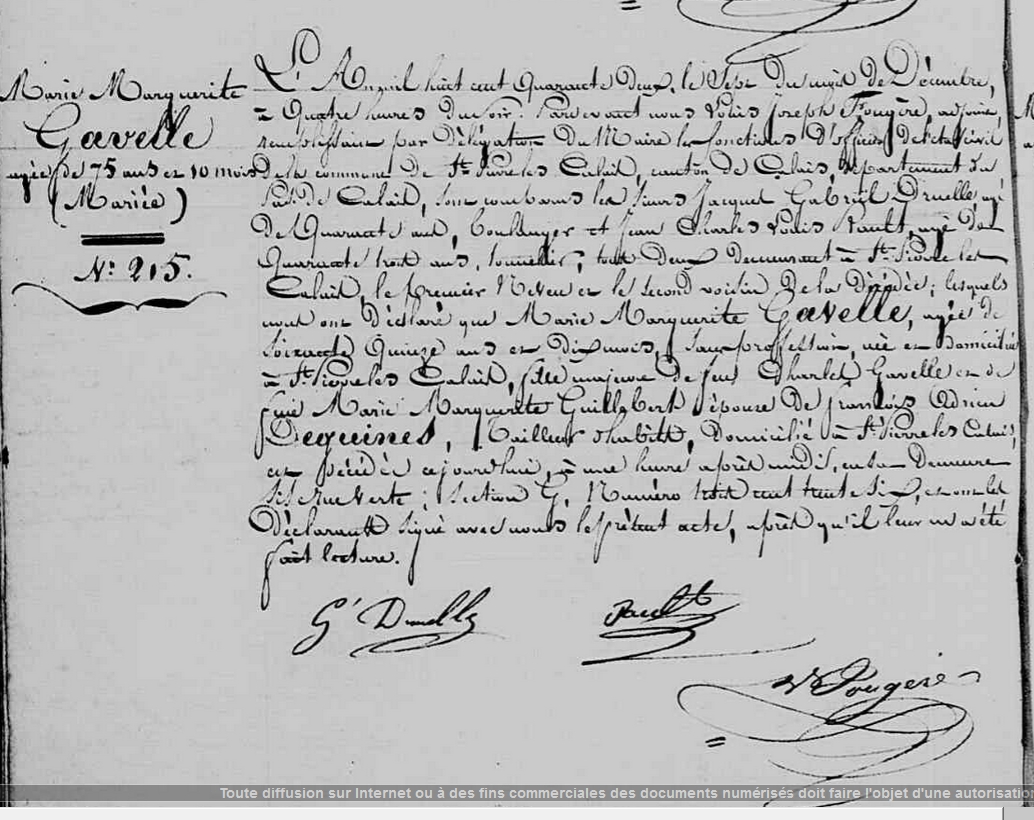 Marie Marguerite
Gavelle
agée de 75 ans et 10 mois
(Mariée)
N° 215.
L'An mil huit cent Quarante Deux, le Sept du mois de Décembre,
à Quatre heures du soir. Pardevant nous Louis Joseph Fougère, adjoint,
remplissant par Délégation du Maire les fonctions d'officier de l'état civil
de la commune de St. Pierre les Calais, canton de Calais, département du
Pas de Calais, sont comparus les sieurs Jacques Gabriel Druelle, agé
de Quarante ans, Boulanger et Jean Charles Louis Pault, agé de
Quarante trois ans, tonnelier, tous deux demeurant à St. Pierre les
Calais, le premier Neveu et le second voisin de la Décédée; lesquels
nous ont Déclaré que Marie Marguerite Gavelle, agée de
Soixante Quinze ans et dix mois, sans profession, née et domiciliée
à St. Pierre les Calais, fille majeure de feus Charles Gavelle et de
feue Marie Marguerite Guillebert, épouse de françois Adrien
Deguines, Tailleur d'habits, domicilié à St. Pierre les Calais,
est décédée cejourd'hui, à une heure après midi, en sa Demeure
sise rue verte; section G, Numéro trois cent trente six, et ont les
Déclarants signé avec nous le présent acte, après qu'il leur en a été
fait lecture.
G' Druelle
Pault
Ls Fougère
Toute diffusion sur Internet ou à des fins commerciales des documents numérisés doit faire l'objet d'une autorisation